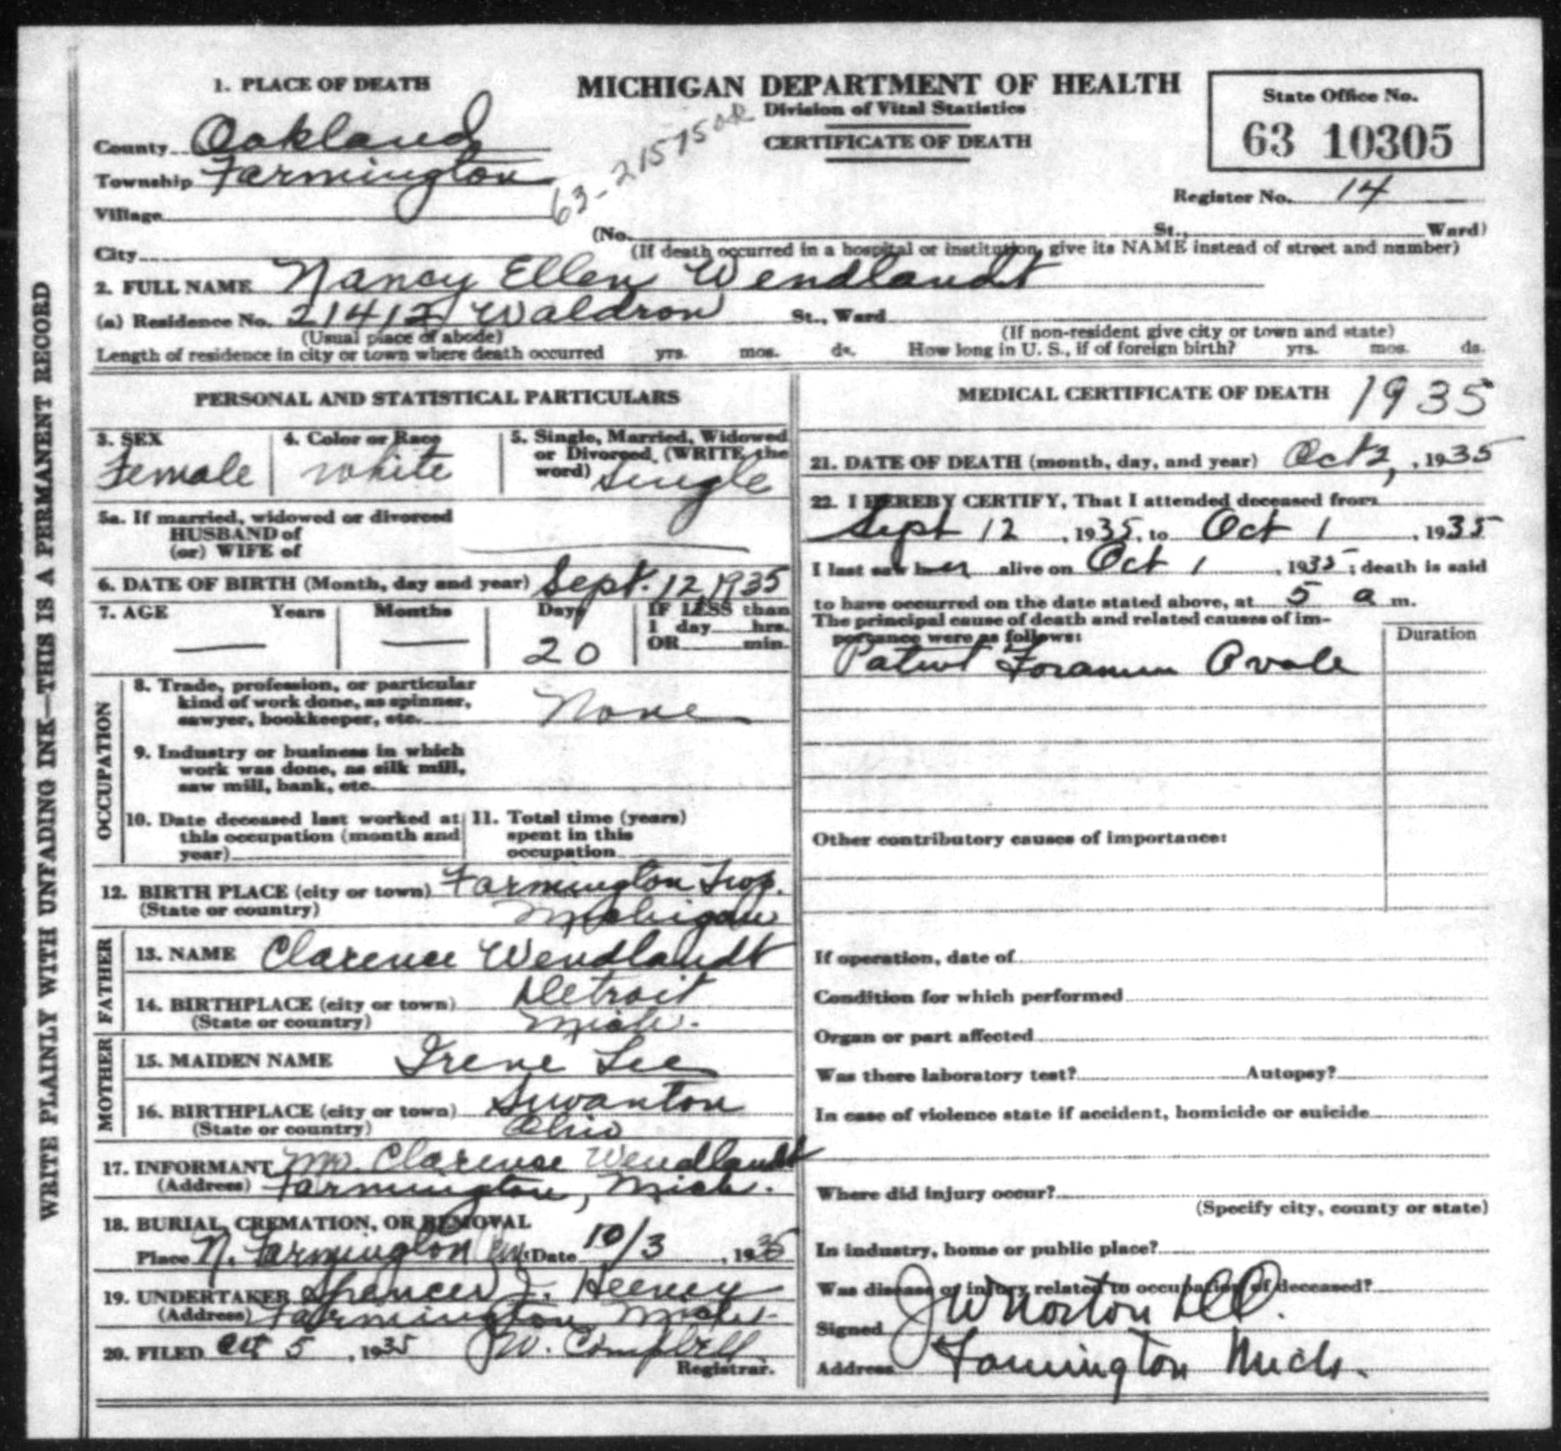 1. PLACE OF DEATH
MICHIGAN DEPARTMENT OF HEALTH
Division of Vital Statistics
CERTIFICATE OF DEATH
State Office No.
63 10305
County Oakland
Township Farmington
Village
63-215750R
Register No. 14
(No. St., Ward)
City
(If death occurred in a hospital or institution, give its NAME instead of street and number)
2. FULL NAME Nancy Ellen Wendlandt
(a) Residence No. 21412 Waldron St., Ward
(Usual place of abode) (If non-resident give city or town and state)
Length of residence in city or town where death occurred yrs. mos. ds. How long in U. S., if of foreign birth? yrs. mos. ds.
WRITE PLAINLY WITH UNFADING INK—THIS IS A PERMANENT RECORD
PERSONAL AND STATISTICAL PARTICULARS
3. SEX
Female
4. Color or Race
White
5. Single, Married, Widowed
or Divorced (WRITE the
word) Single
5a. If married, widowed or divorced
HUSBAND of
(or) WIFE of
6. DATE OF BIRTH (Month, day and year) Sept. 12, 1935
7. AGE Years Months Days IF LESS than
1 day hrs.
20 OR min.
OCCUPATION
8. Trade, profession, or particular
kind of work done, as spinner,
sawyer, bookkeeper, etc. None
9. Industry or business in which
work was done, as silk mill,
saw mill, bank, etc.
10. Date deceased last worked at
this occupation (month and
year)
11. Total time (years)
spent in this
occupation
12. BIRTH PLACE (city or town) Farmington Twp.
(State or country) Michigan
FATHER
13. NAME Clarence Wendlandt
14. BIRTHPLACE (city or town) Detroit
(State or country) Mich.
MOTHER
15. MAIDEN NAME Irene Lee
16. BIRTHPLACE (city or town) Swanton
(State or country) Ohio
17. INFORMANT Mr. Clarence Wendlandt
(Address) Farmington, Mich.
18. BURIAL, CREMATION, OR REMOVAL
Place N. Farmington Cem. Date 10/3, 1935
19. UNDERTAKER Spencer J. Heeney
(Address) Farmington Mich.
20. FILED Oct 5, 1935 J W. Campbell
Registrar.
MEDICAL CERTIFICATE OF DEATH 1935
21. DATE OF DEATH (month, day, and year) Oct 2, 1935
22. I HEREBY CERTIFY, That I attended deceased from
Sept 12, 1935, to Oct 1, 1935
I last saw her alive on Oct 1, 1935; death is said
to have occurred on the date stated above, at 5 a m.
The principal cause of death and related causes of im-
portance were as follows: Duration
Patent Foramen Ovale
Other contributory causes of importance:
If operation, date of
Condition for which performed
Organ or part affected
Was there laboratory test? Autopsy?
In case of violence state if accident, homicide or suicide
Where did injury occur?
(Specify city, county or state)
In industry, home or public place?
Was disease or injury related to occupation of deceased?
Signed J W Norton D.O.
Address Farmington Mich.